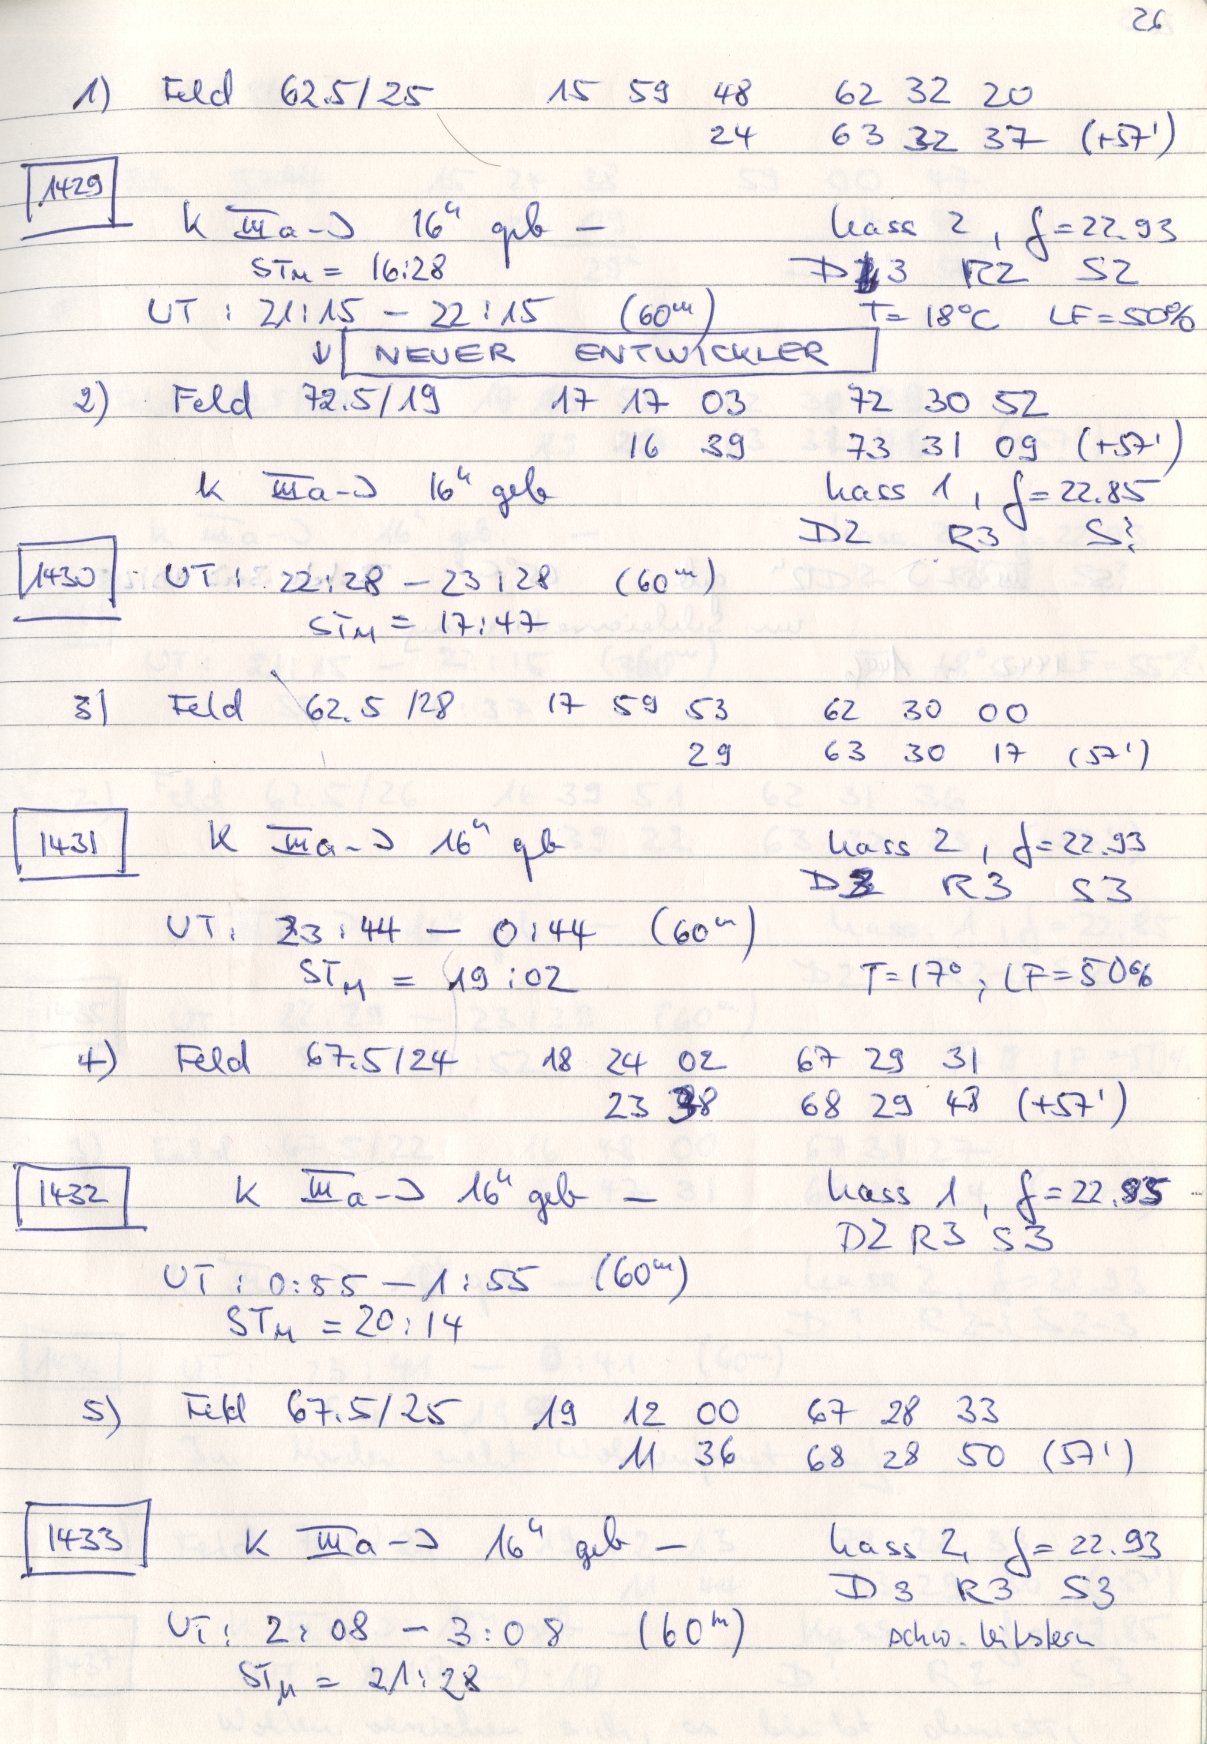 26
1) Feld 62.5/25 15 59 48 62 32 20
24 63 32 37 (+57')
1429
K IIIa-J 16h geb - Kass 2, f=22.93
STM = 16:28 D 3 R2 S2
UT: 21:15 - 22:15 (60m) T=18°C LF=50%
↓ NEUER ENTWICKLER
2) Feld 72.5/19 17 17 03 72 30 52
16 39 73 31 09 (+57')
K IIIa-J 16h geb Kass 1, f=22.85
D2 R3 S?
1430 UT: 22:28 - 23:28 (60m)
STM = 17:47
3) Feld 62.5/28 17 59 53 62 30 00
29 63 30 17 (57')
1431 K IIIa-J 16h geb Kass 2, f=22.93
D R3 S3
UT: 23:44 - 0:44 (60m)
STM = 19:02 T=17°, LF=50%
4) Feld 67.5/24 18 24 02 67 29 31
23 38 68 29 48 (+57')
1432 K IIIa-J 16h geb - Kass 1, f=22.85
D2 R3 S3
UT: 0:55 - 1:55 (60m)
STM = 20:14
5) Feld 67.5/25 19 12 00 67 28 33
11 36 68 28 50 (57')
1433 K IIIa-J 16h geb - Kass 2, f=22.93
D3 R3 S3
UT: 2:08 - 3:08 (60m) schw. Leitstern
STM = 21:28